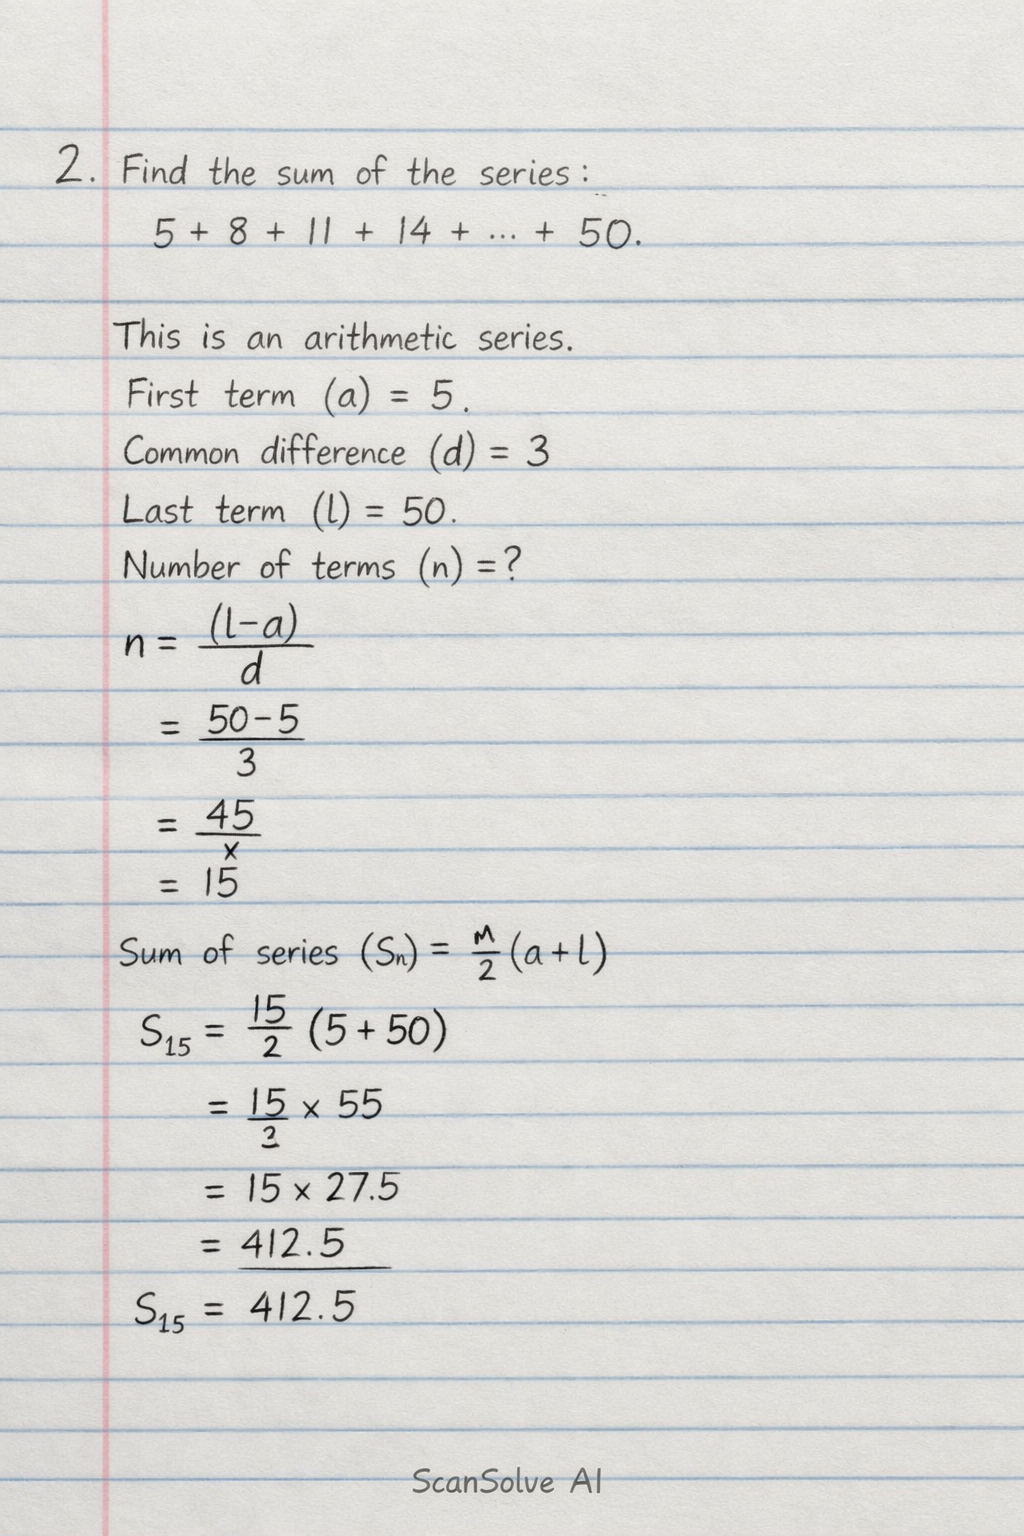 2. Find the sum of the series:
5 + 8 + 11 + 14 + ... + 50.
This is an arithmetic series.
First term (a) = 5.
Common difference (d) = 3
Last term (l) = 50.
Number of terms (n) = ?
n = (l-a)
d
= 50-5
3
= 45
x
= 15
Sum of series (Sn) = M/2 (a+l)
S15 = 15/2 (5+50)
= 15/2 x 55
= 15 x 27.5
= 412.5
S15 = 412.5
ScanSolve AI